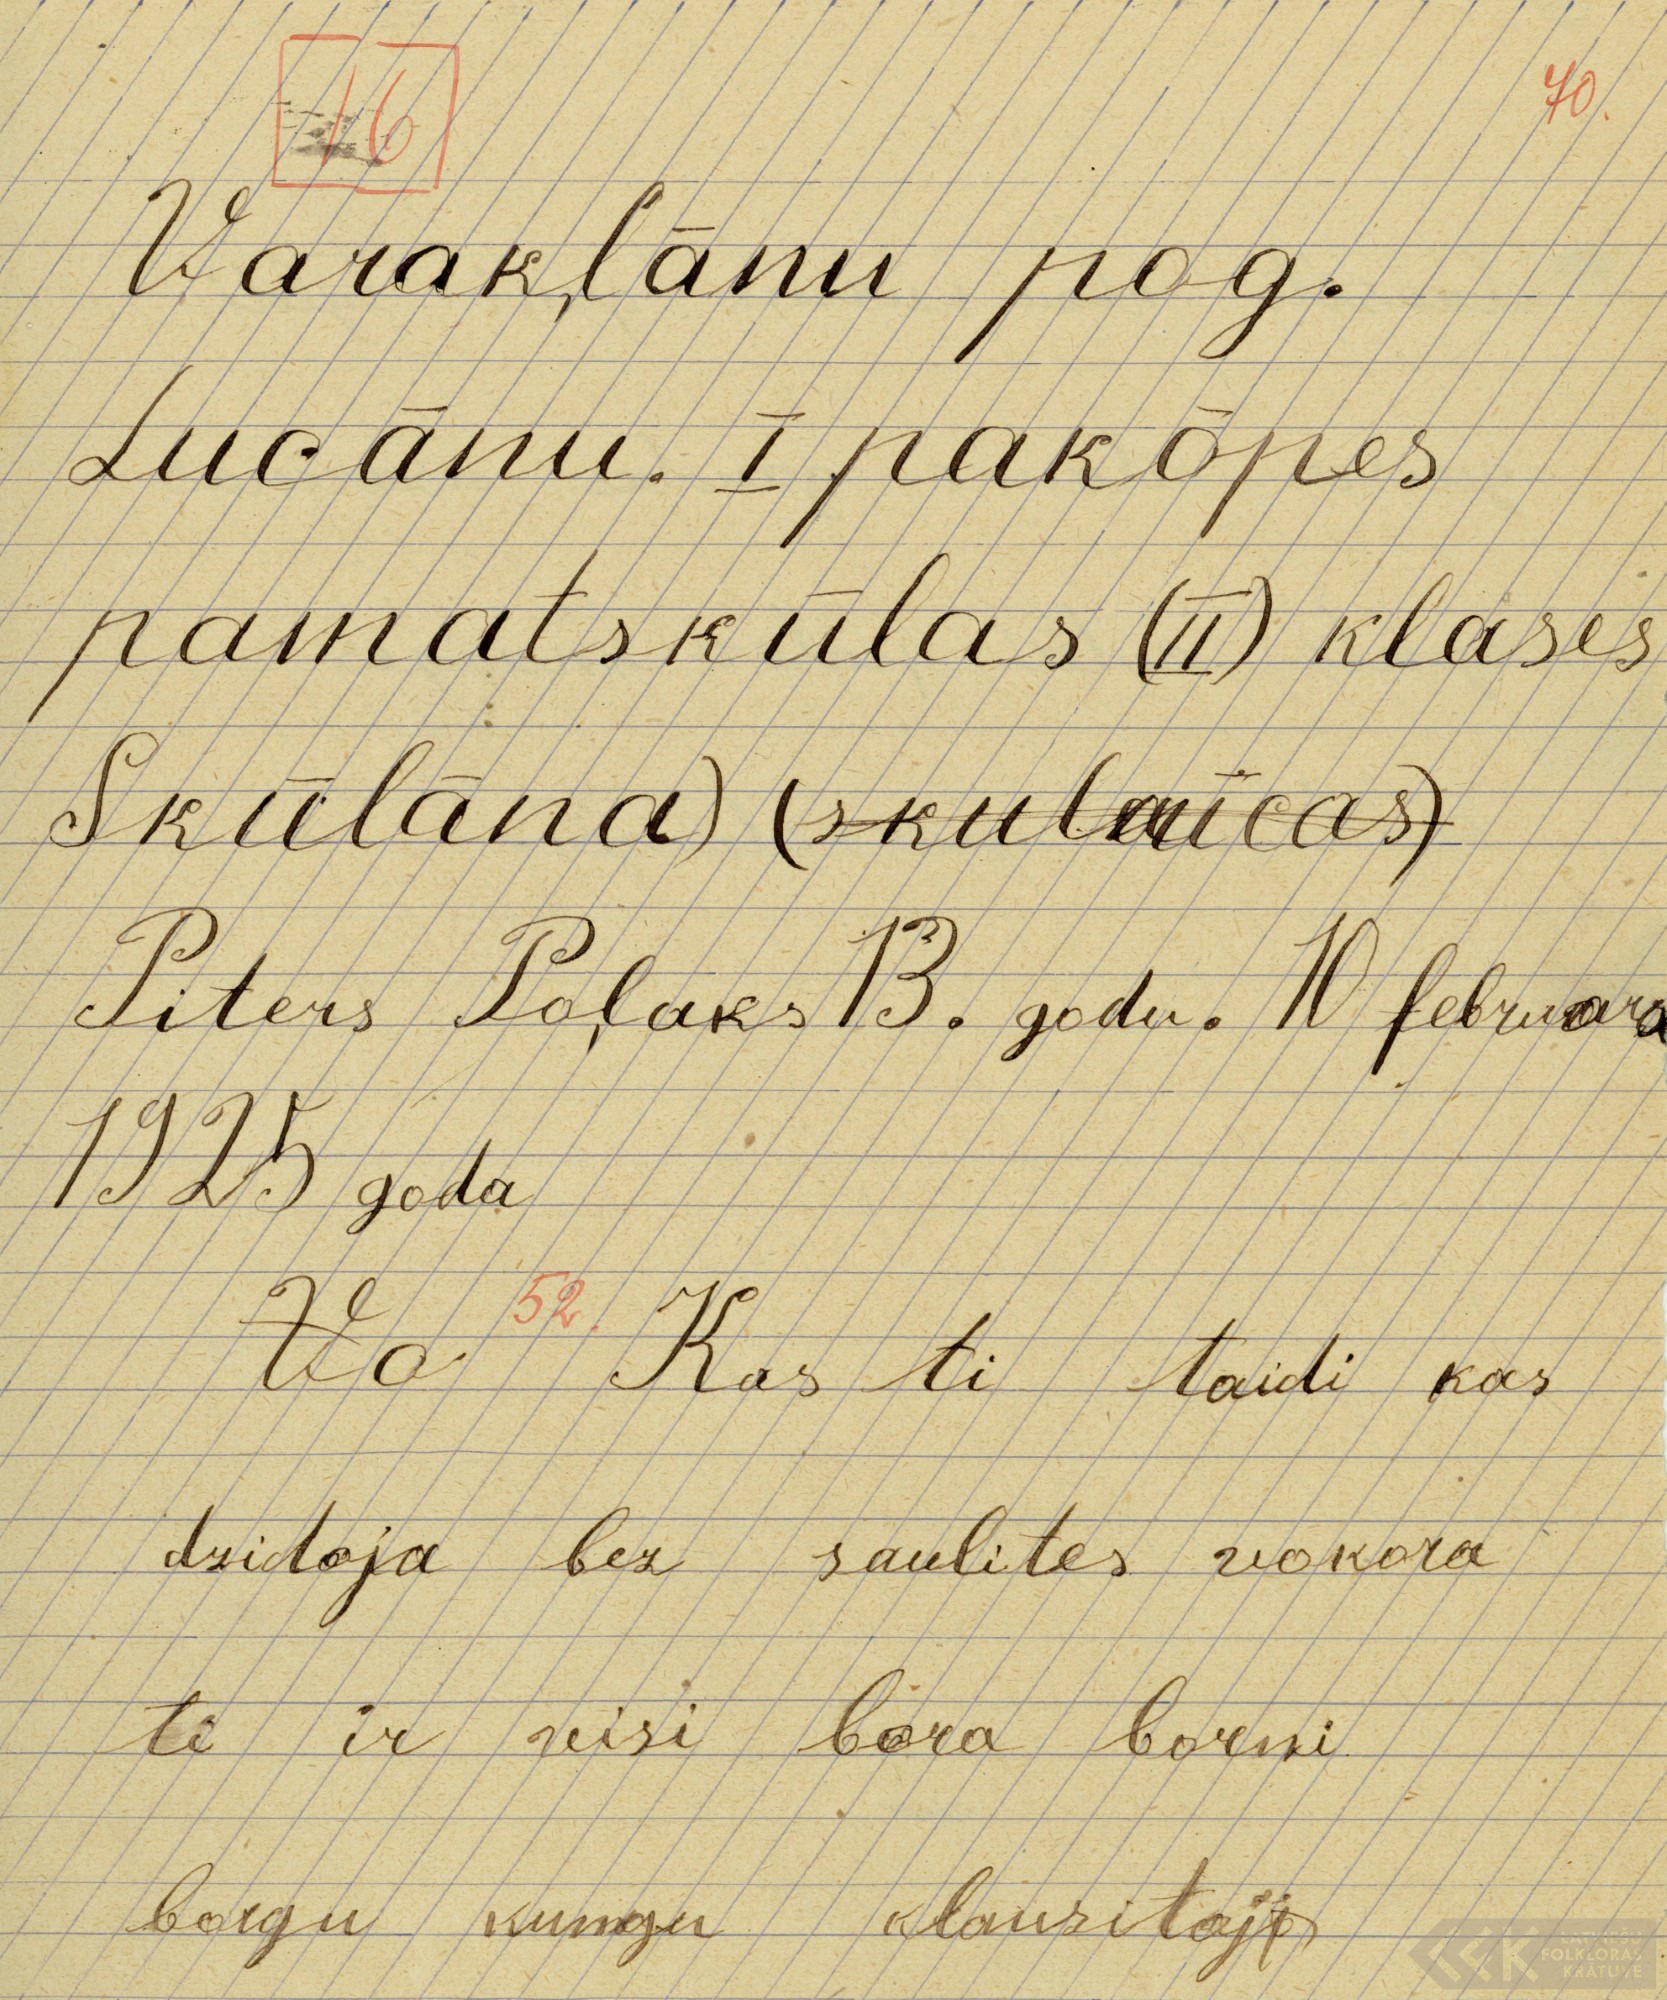 16
70.
Varakļānu pog.
Lucānu. I pakōpes
pamatskūlas (II) klases
Skūlāna) (skulnīcas)
Piters Poļaks 13. godu. 10 februara
1925 goda
Vo 52. Kas ti taidi kas
dzidoja bez saulites vokora
ti ir visi bora borni
borgu kungu klausitoji
LATVIEŠU
FOLKLORAS
KRĀTUVE